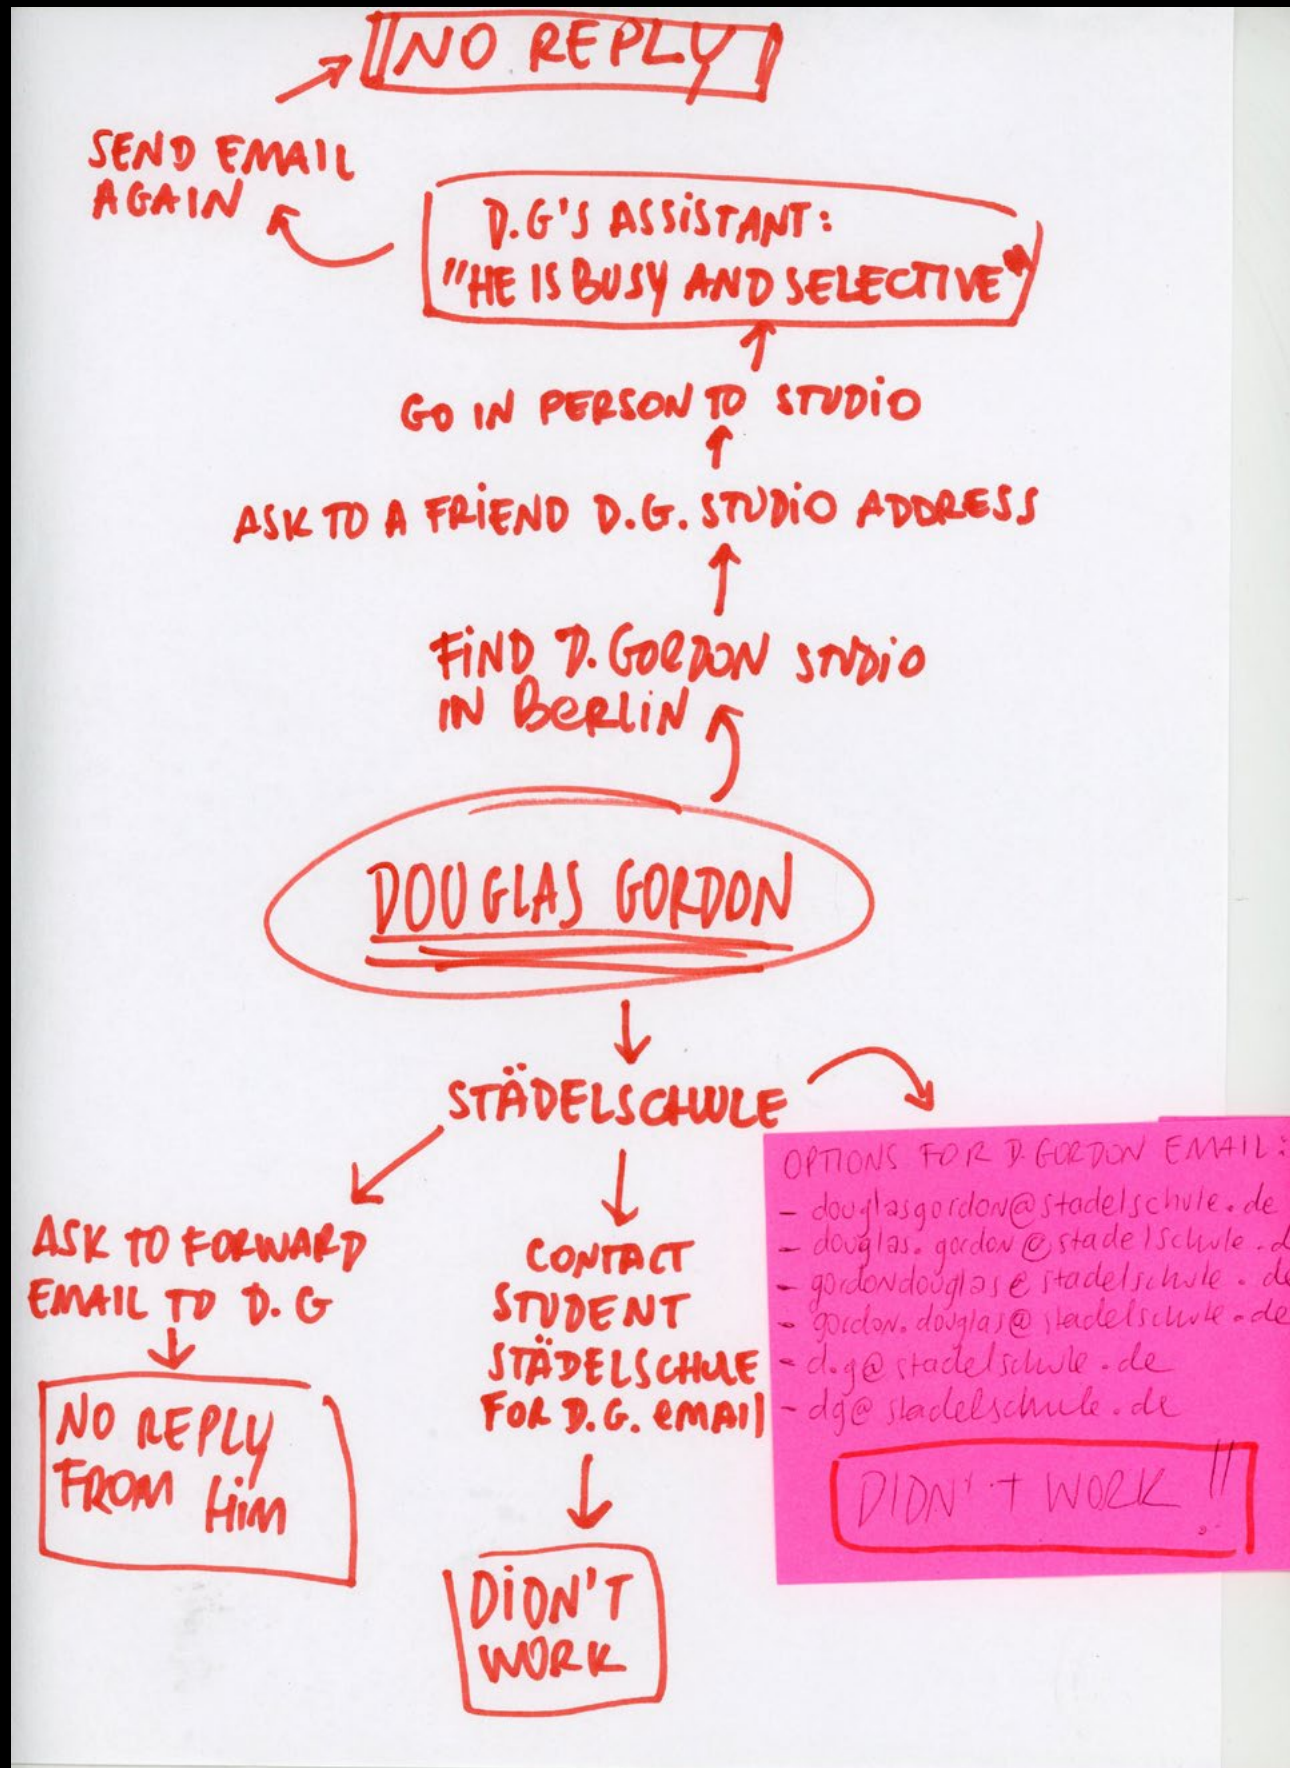 NO REPLY
SEND EMAIL
AGAIN
D.G'S ASSISTANT:
"HE IS BUSY AND SELECTIVE"
GO IN PERSON TO STUDIO
ASK TO A FRIEND D.G. STUDIO ADDRESS
FIND D. GORDON STUDIO
IN BERLIN
DOUGLAS GORDON
STÄDELSCHULE
ASK TO FORWARD
EMAIL TO D.G
NO REPLY
FROM HIM
CONTACT
STUDENT
STÄDELSCHULE
FOR D.G. EMAIL
DIDN'T
WORK
OPTIONS FOR D. GORDON EMAIL:
- douglasgordon@stadelschule.de
- douglas.gordon@stadelschule.d
- gordondouglas@stadelschule.de
- gordon.douglas@stadelschule.de
- d.g@stadelschule.de
- dg@stadelschule.de
DIDN'T WORK !!